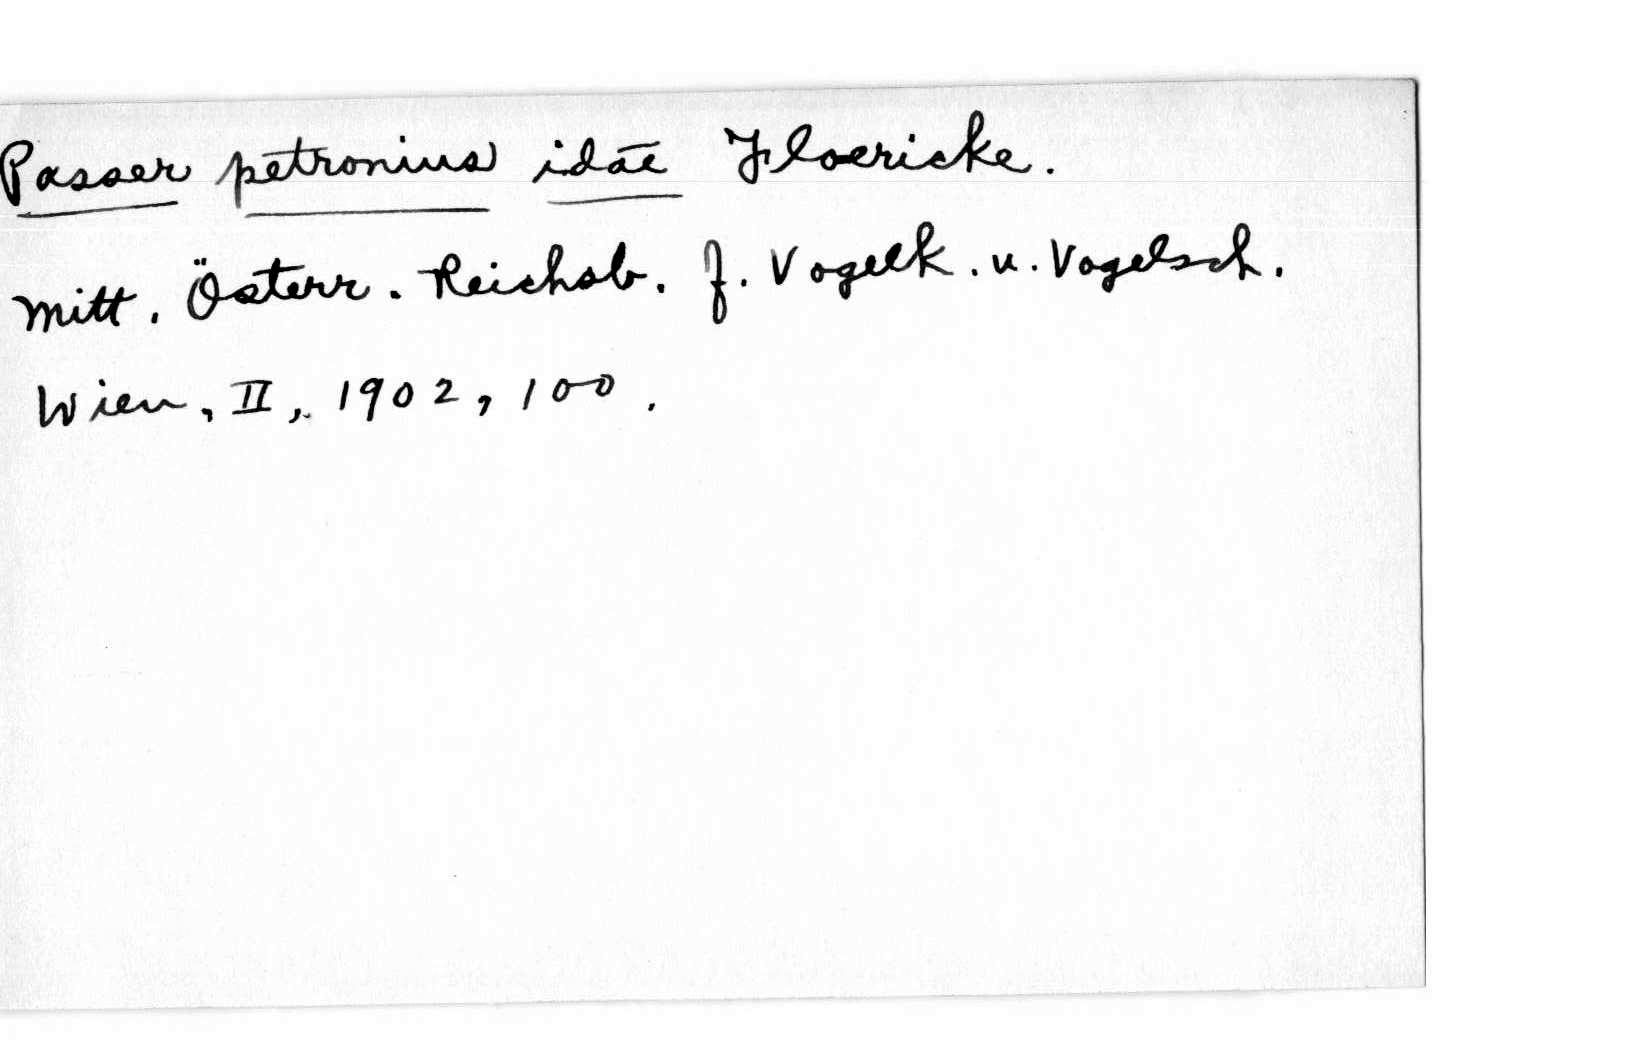 Passer petronius idae Floericke.
Mitt. Österr. Reichsb. f. Vogelk. u. Vogelsch.
Wien, II, 1902, 100.